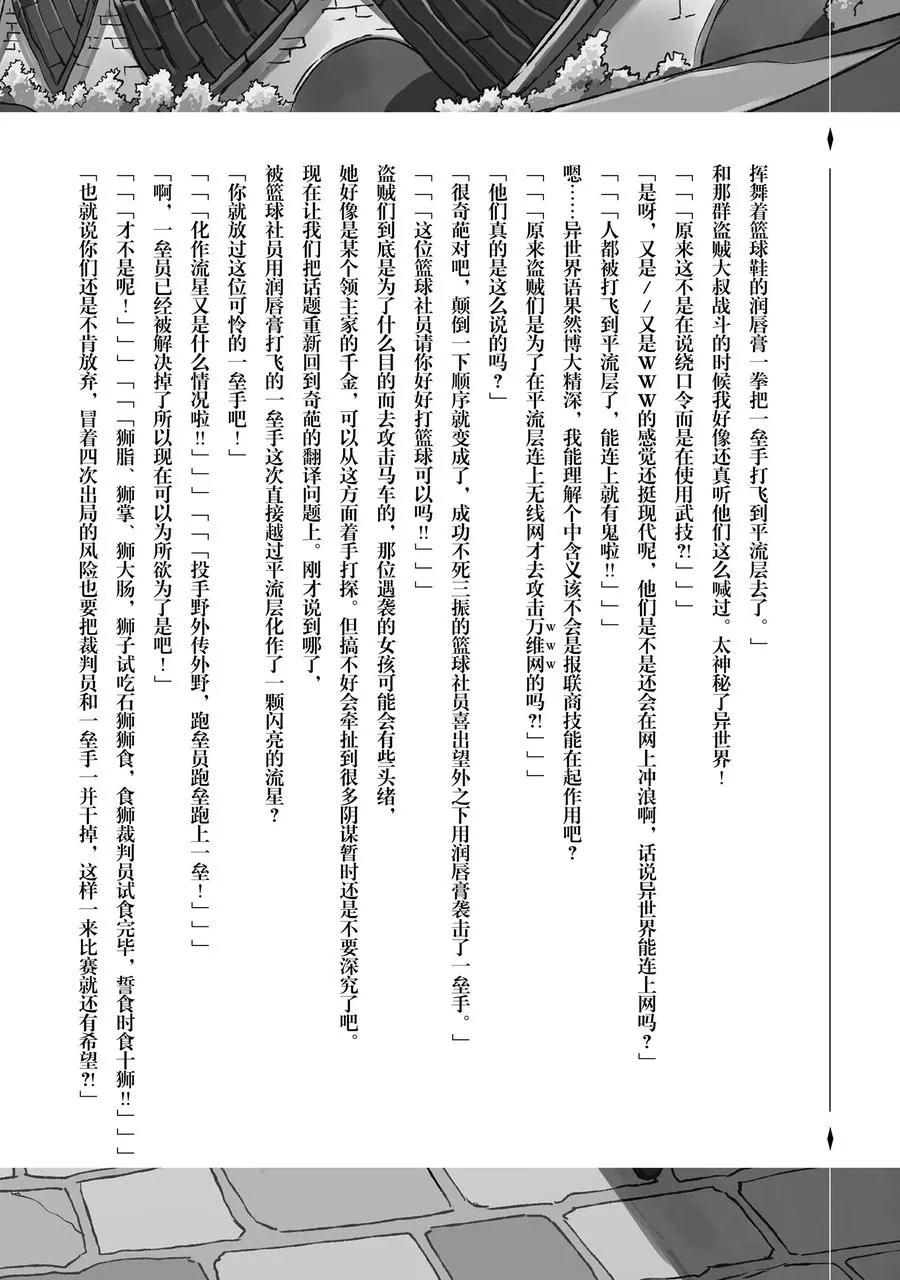 挥舞着篮球鞋的润唇膏一拳把一垒手打飞到平流层去了。」
和那群盗贼大叔战斗的时候我好像还真听他们这么喊过。太神秘了异世界!
「「「原来这不是在说绕口令而是在使用武技?!」」」
「是呀，又是//又是WWW的感觉还挺现代呢，他们是不是还会在网上冲浪啊，话说异世界能连上网吗?」
「「「人都被打飞到平流层了，能连上就有鬼啦!!」」」
嗯……异世界语果然博大精深，我能理解个中含义该不会是报联商技能在起作用吧?
「「「原来盗贼们是为了在平流层连上无线网才去攻击万维网的吗?!」」」
www
「他们真的是这么说的吗?」
「很奇葩对吧，颠倒一下顺序就变成了，成功不死三振的篮球社员喜出望外之下用润唇膏袭击了一垒手。」
「「「这位篮球社员请你好好打篮球可以吗!!」」」
盗贼们到底是为了什么目的而去攻击马车的，那位遇袭的女孩可能会有些头绪，
她好像是某个领主家的千金，可以从这方面着手打探。但搞不好会牵扯到很多阴谋暂时还是不要深究了吧。
现在让我们把话题重新回到奇葩的翻译问题上。刚才说到哪了，
被篮球社员用润唇膏打飞的一垒手这次直接越过平流层化作了一颗闪亮的流星?
「你就放过这位可怜的一垒手吧!」
「「「化作流星又是什么情况啦!!」」」「「「投手野外传外野，跑垒员跑垒跑上一垒!」」」
「啊，一垒员已经被解决掉了所以现在可以为所欲为了是吧!」
「「「才不是呢!」」」「「「狮脂、狮掌、狮大肠，狮子试吃石狮狮食，食狮裁判员试食完毕，誓食时食十狮!!」」」
「也就说你们还是不肯放弃，冒着四次出局的风险也要把裁判员和一垒手一并干掉，这样一来比赛就还有希望?!」